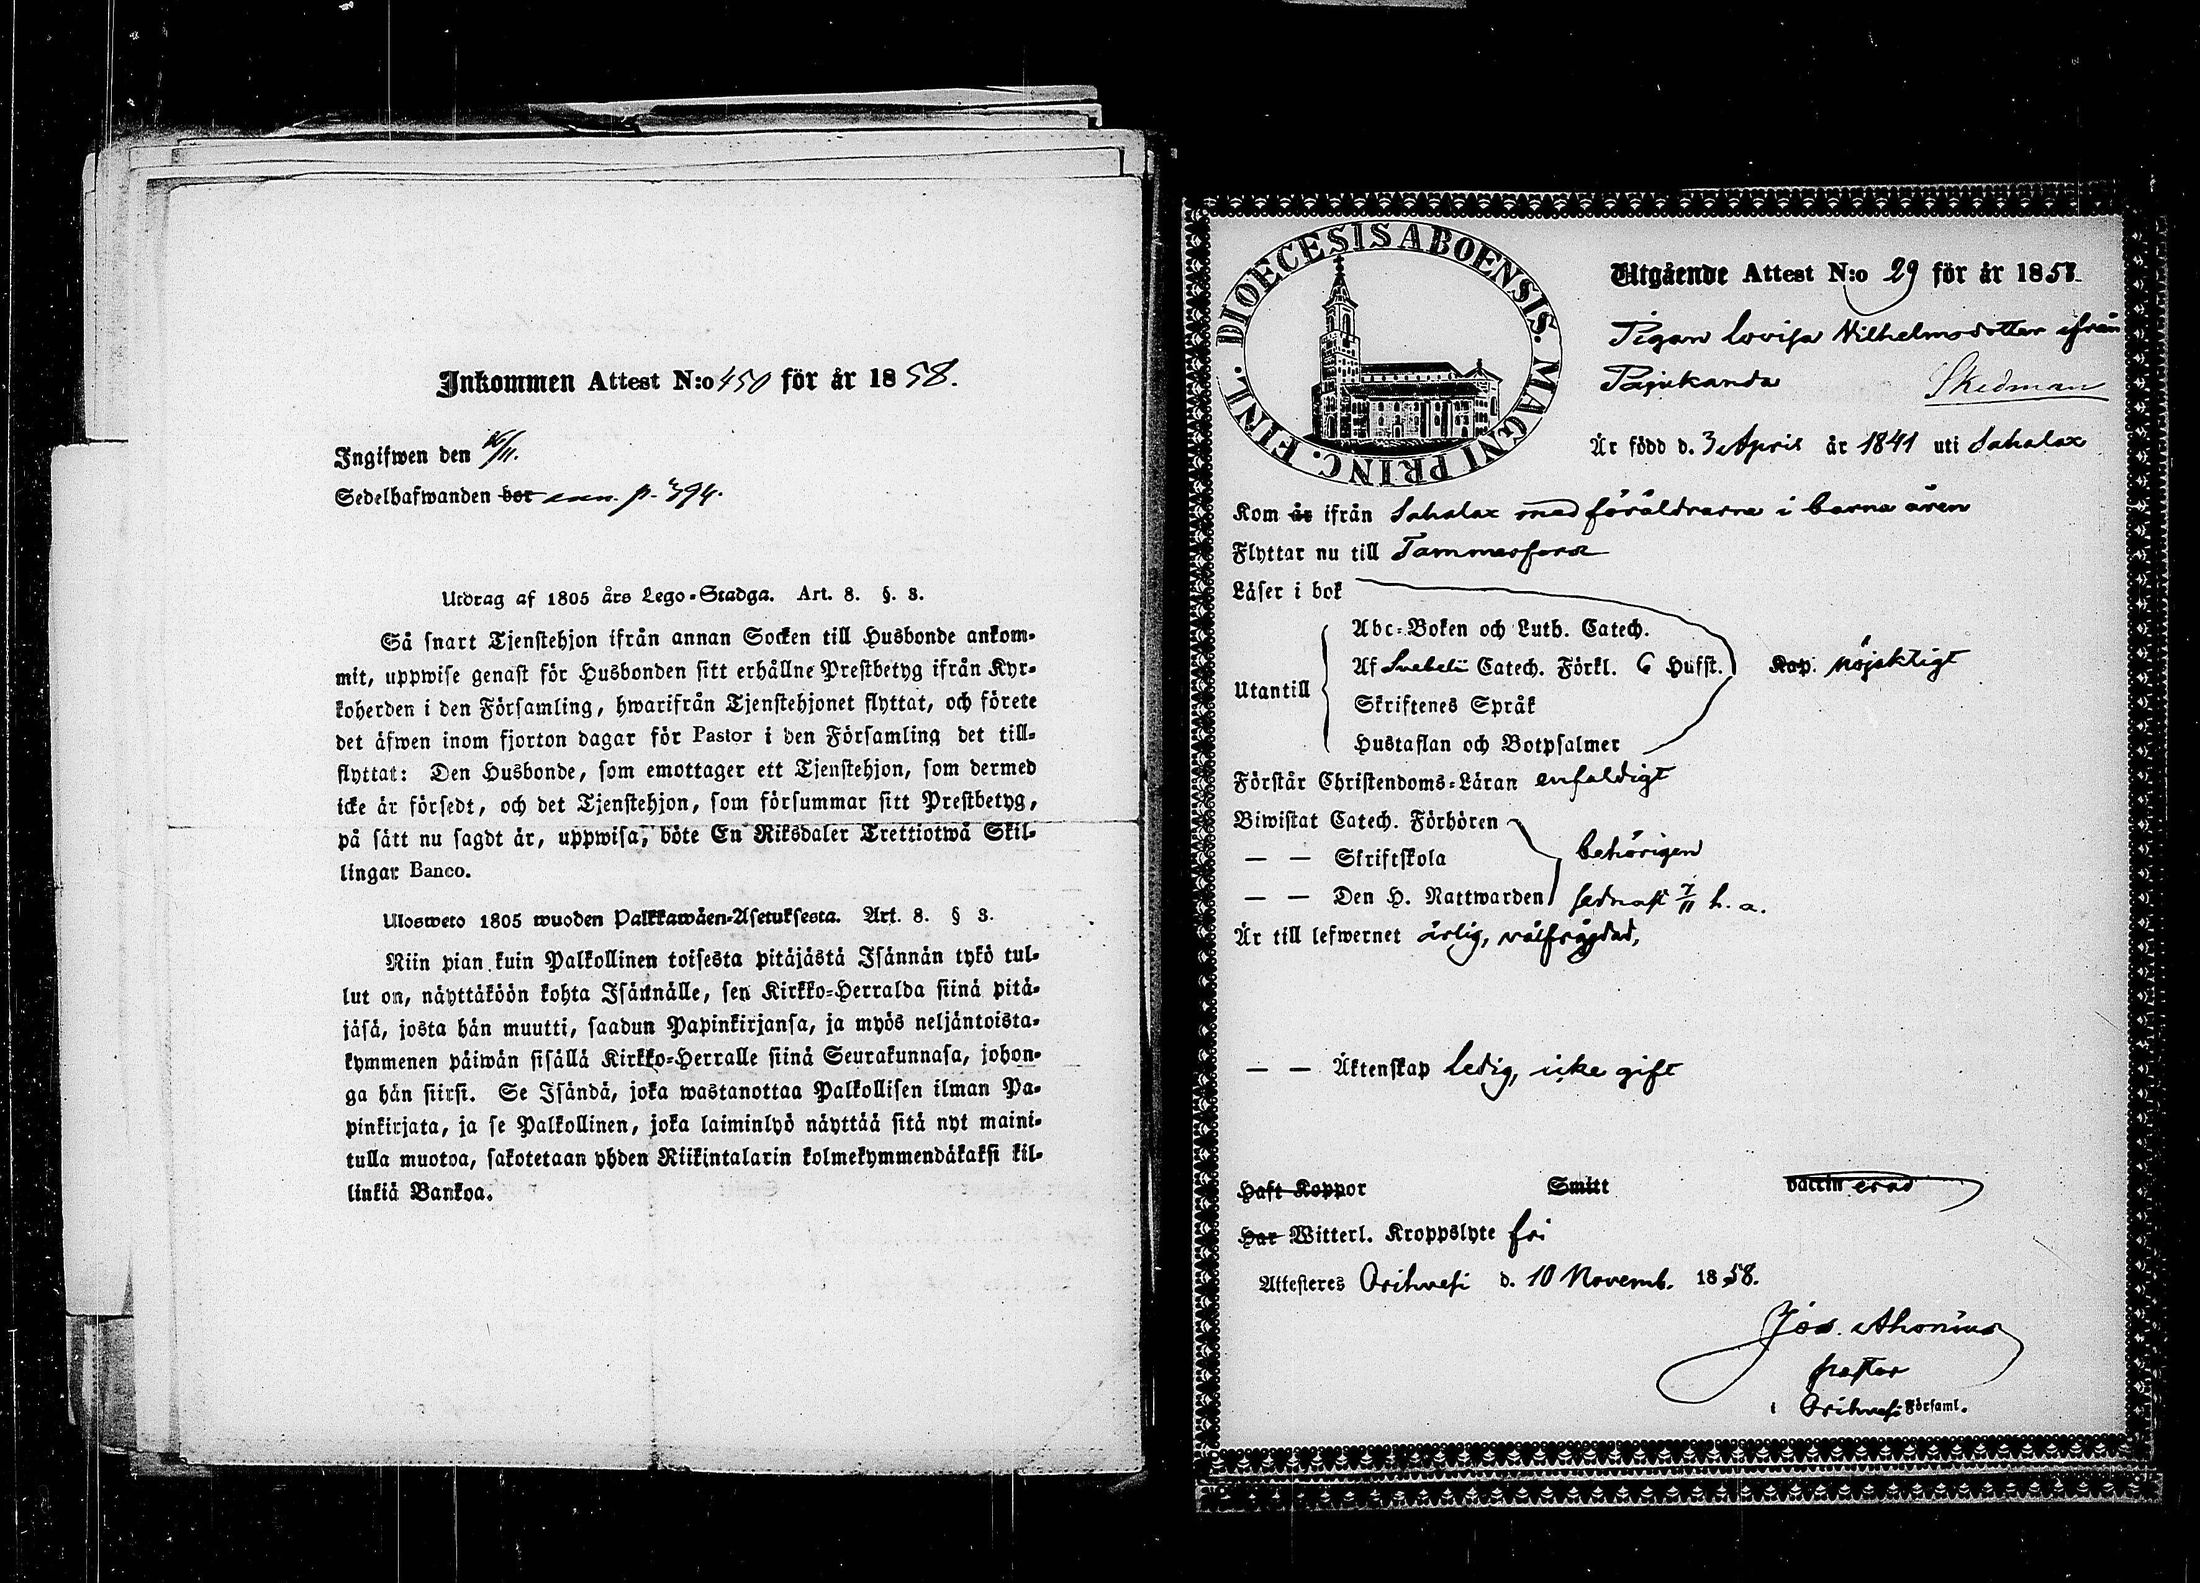 Inkommen Attest N:o 450 för år 1858.
Ingifwen den 16/11.
Sedelhafwanden bor p. 394.
Utdrag af 1805 års Lego-Stadga. Art. 8. §. 3.
Så snart Tjenstehjon ifrån annan Socken till Husbonde ankom-
mit, uppwise genast för Husbonden sitt erhållne Prestbetyg ifrån Kyr-
koherden i den Församling, hwarifrån Tjenstehjonet flyttat, och förete
det äfwen inom fjorton dagar för Pastor i den Församling det till-
flyttat: Den Husbonde, som emottager ett Tjenstehjon, som dermed
icke är försedt, och det Tjenstehjon, som försummar sitt Prestbetyg,
på sätt nu sagdt är, uppwisa, böte En Riksdaler Trettiotwå Skil-
lingar Banco.
Ulosweto 1805 wuoden Palkkawäen-Asetuksesta. Art. 8. § 3.
Niin pian kuin Palkollinen toisesta pitäjästä Isännän tykö tul-
lut on, näyttäköön kohta Isännälle, sen Kirkko-Herralda siinä pitä-
jäsä, josta hän muutti, saadun Papinkirjansa, ja myös neljäntoista-
kymmenen päiwän sisällä Kirkko-Herralle siinä Seurakunnasa, johon-
ga hän siirsi. Se Isändä, joka wastanottaa Palkollisen ilman Pa-
pinkirjata, ja se Palkollinen, joka laiminlyö näyttää sitä nyt maini-
tulla muotoa, sakotetaan yhden Riikintalarin kolmekymmendäkaksi kil-
linkiä Bankoa.
DIOECESIS ABOENSIS. MAGNI PRINC. FINL.
Utgående Attest N:o 29 för år 1858.
Pigan Lovisa Wilhelmsdotter ifrån
Pajukanda Skedman
Är född d. 3 April år 1841 uti Sahalax
Kom år ifrån Sahalax med föräldrarna i barna åren
Flyttar nu till Tammerfors
Läser i bok
Utantill
Abc-Boken och Luth. Catech.
Af Svebelii Catech. Förkl. 6 Hufst. Kap. nöjaktigt
Skriftenes Språk
Hustaflan och Botpsalmer
Förstår Christendoms-Läran enfaldigt
Biwistat Catech. Förhören
— — Skriftskola behörigen
— — Den H. Nattwarden sednast 7/11 h. a.
Är till lefwernet ärlig, välfräjdad,
— — Äktenskap ledig, icke gift
Haft Koppor Smitt vaccinerad
Har Witterl. Kroppslyte fri
Attesteres Orihvesi d. 10 Novemb. 1858.
Jos. Ahonius
pastor
i Orihvesi Församl.